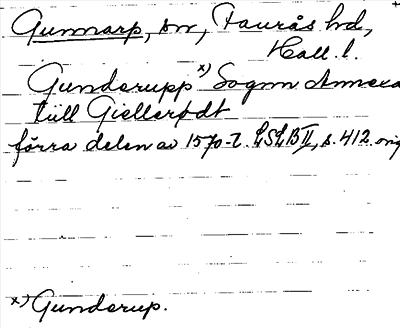 Gunnarp, sn, Faurås hd,
Hall. l.
Gunderupp x) Sognn Annexa
till Giellerødt
förra delen av 1570-t. LSLB II, s. 412. orig
x) Gunderup.